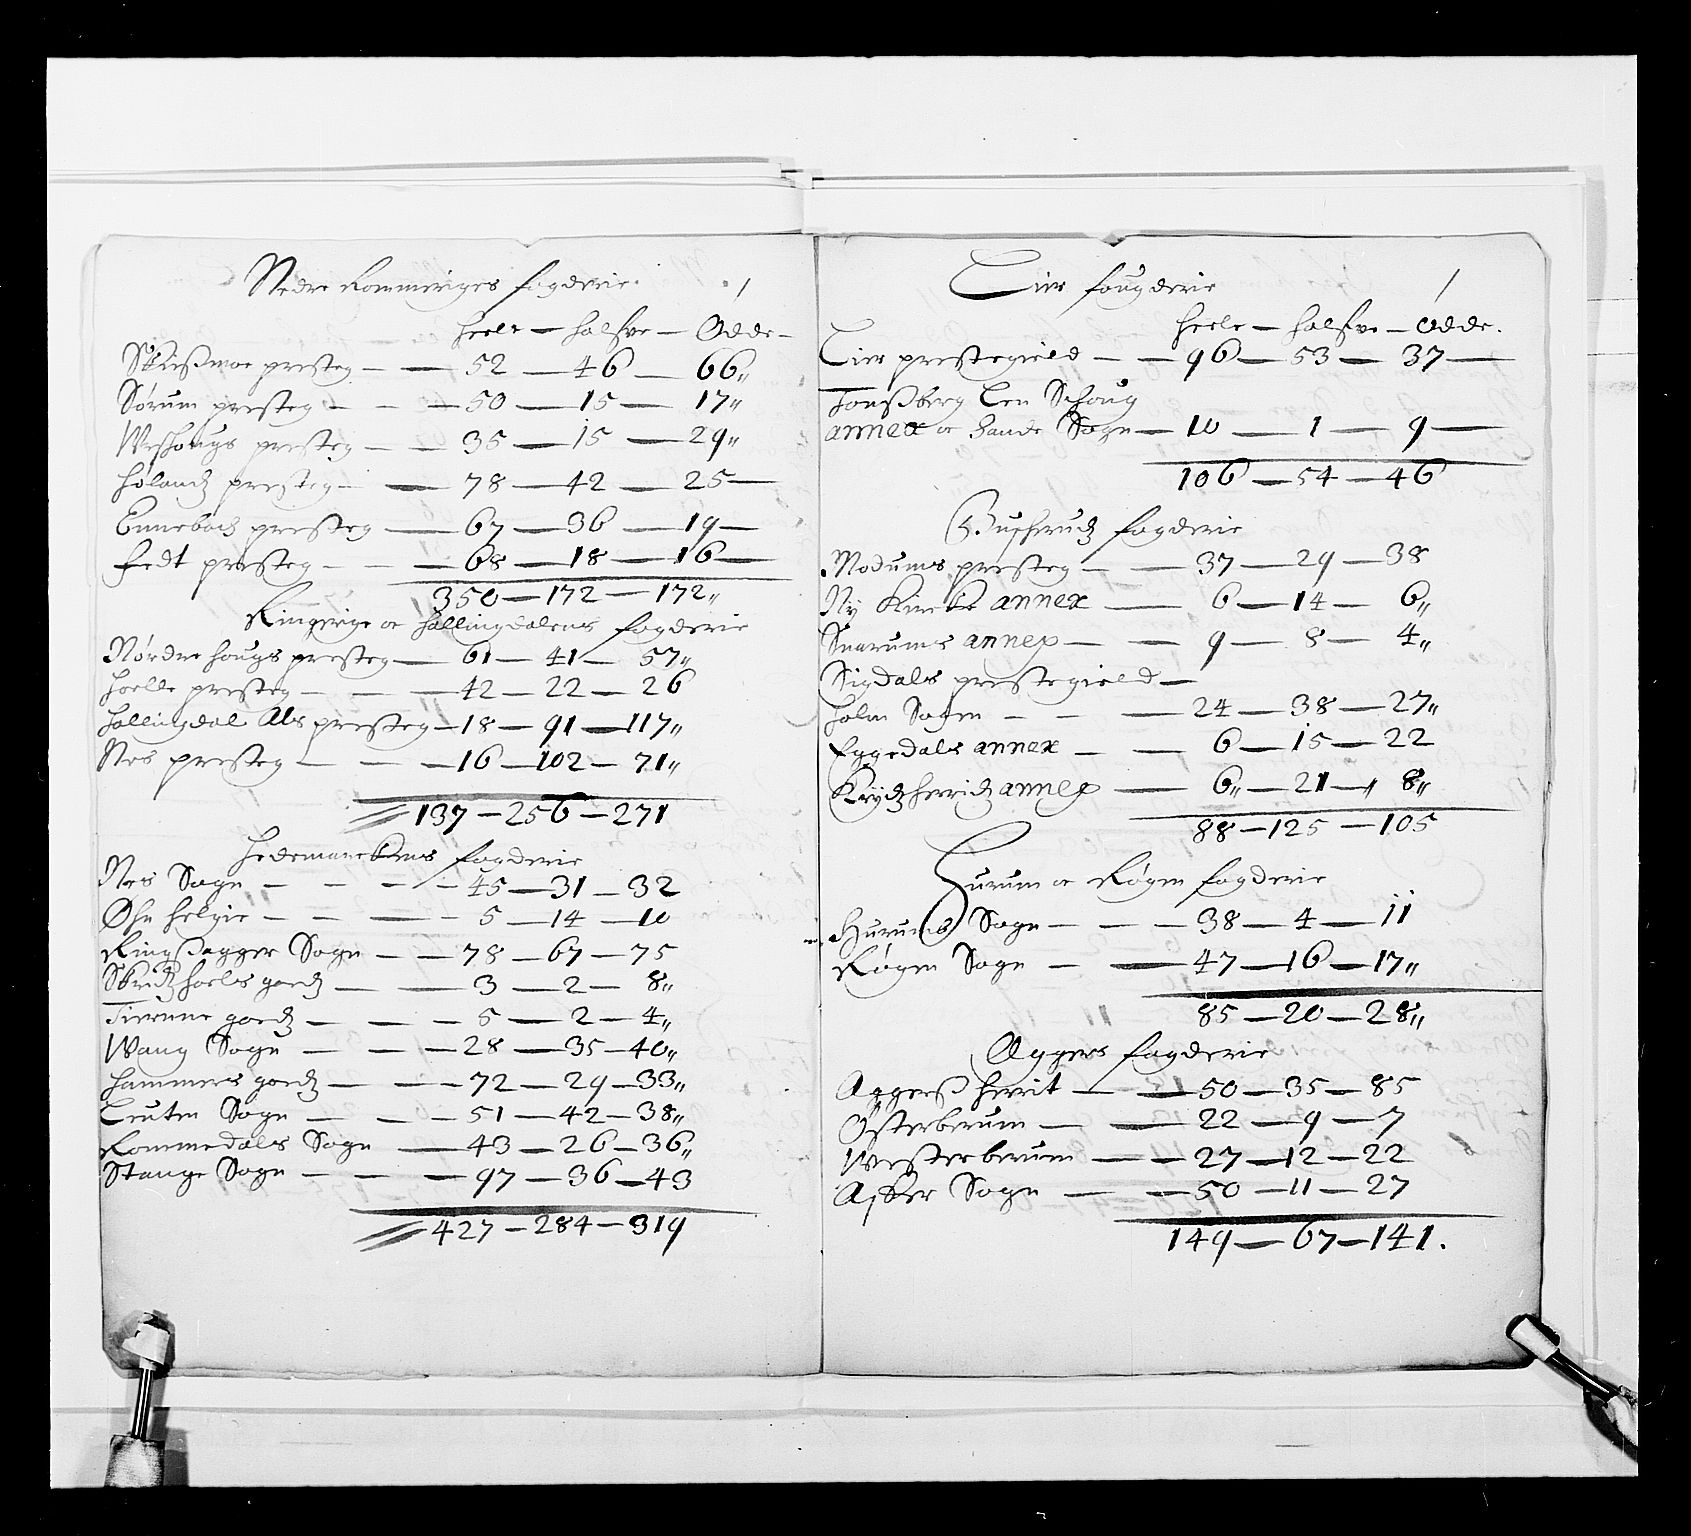 Nedre Rommeriges fogderie.
heele — halfve — Ødde —
Skiesmoe presteg — — 52 — 46 — 66„
Sørum presteg — — — 50 — 15 — 17„
Weshougs presteg — — 35 — 15 — 29„
Høland presteg — — 78 — 42 — 25 —
Ennebach presteg — 67 — 36 — 19 —
Fedt presteg — — — 68 — 18 — 16 —
350 — 172 — 172„
Ringerige oc Hallingdalens fogderie
Nørdre hougs presteg — 61 — 41 — 57„
Hoelle presteg — — — 42 — 22 — 26
Hallingdal Als presteg — 18 — 91 — 117„
Nes presteg — — — 16 — 102 — 71„
137 — 256 — 271
Hedemarckens fogderie
Nes Sogn — — — — 45 — 31 — 32
Øhn helgie — — — — 5 — 14 — 10
Ringßagger Sogn — — 78 — 67 — 75
Skredzhoels gordz — — 3 — 2 — 8„
Tierenne gordz — — — 5 — 2 — 4„
Wang Sogn — — — 28 — 35 — 40„
Hammers gordz — — — 72 — 29 — 33„
Leuten Sogn — — — 51 — 42 — 38„
Rommedals Sogn — 43 — 26 — 36„
Stange Sogn — — — 97 — 36 — 43
427 — 284 — 319
Lier fougderie
heele — halfve — Ødde.
Lier prestegield — — 96 — 53 — 37 —
Tonßberg Len Schoug
annex oc Sande Sogn — 10 — 1 — 9 —
106 — 54 — 46
Buscherudz fogderie
Modums presteg — — 37 — 29 — 38
Ny Kircke annex — 6 — 14 — 6„
Snarums annex — — 9 — 8 — 4„
Sigdals prestegield —
Holm Sogen — — — 24 — 38 — 27„
Eggedals annex — — 6 — 15 — 22
Krydzherridz annex — 6„ — 21 — „ 8„
88 — 125 — 105
Hurum oc Røgen fogderie
Hurums Sogn — — — 38 — 4 — 11
Røgen Sogn — — 47 — 16 — 17„
85 — 20 — 28„
Aggers fogderie
Aggerß herrit — — 50 — 35 — 85
Østerberum — — 22 — 9 — 7
Westerberum — — 27 — 12 — 22
Asker Sogn — — 50 — 11 — 27
149 — 67 — 141.